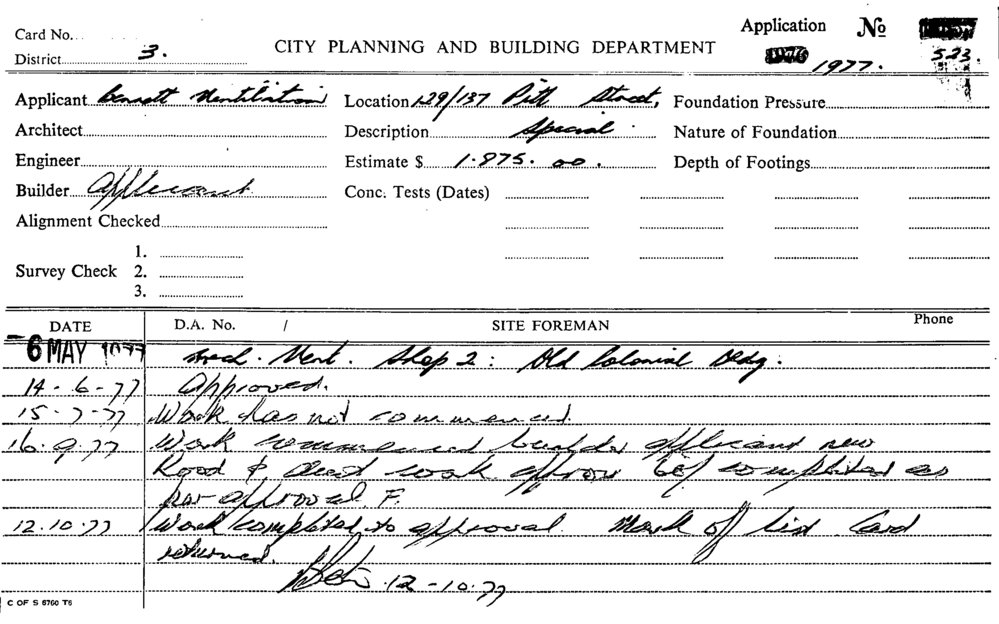 Card No.
District 3.
CITY PLANNING AND BUILDING DEPARTMENT
Application No
1977. 523
Applicant Bennett Ventilation
Location 129/137 Pitt Street,
Foundation Pressure
Architect
Description Special.
Nature of Foundation
Engineer
Estimate $ 1.875.00.
Depth of Footings
Builder Applicant
Conc. Tests (Dates)
Alignment Checked
1.
Survey Check 2.
3.
DATE D.A. No. / SITE FOREMAN Phone
-6 MAY 1977 Mech. Vent. Shop 2: Old Colonial Bldg.
14-6-77 Approved.
15-7-77 Work has not commenced
16.9.77 Work commenced builder applicant new
hood & duct work approx 60% completed as
per approval. F.
12.10.77 Work completed to approval. Mark off list Card
returned.
12-10-77
C OF S 6760 T6